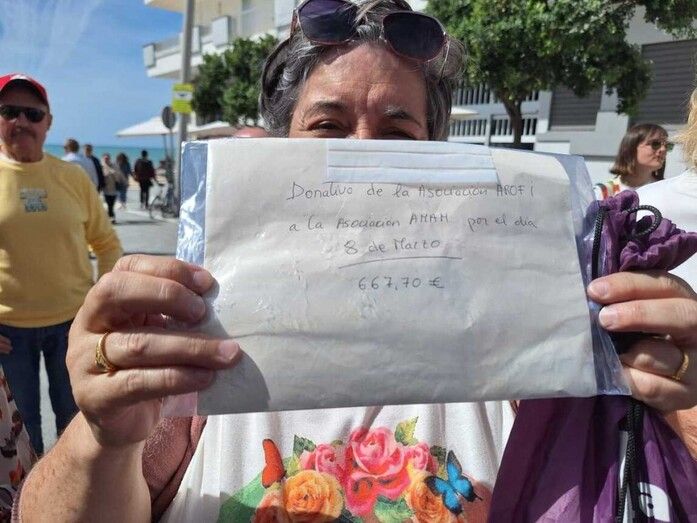 Donativo de la Asociación AROFI
a la Asociación AMAM por el día
8 de Marzo
667,70 €